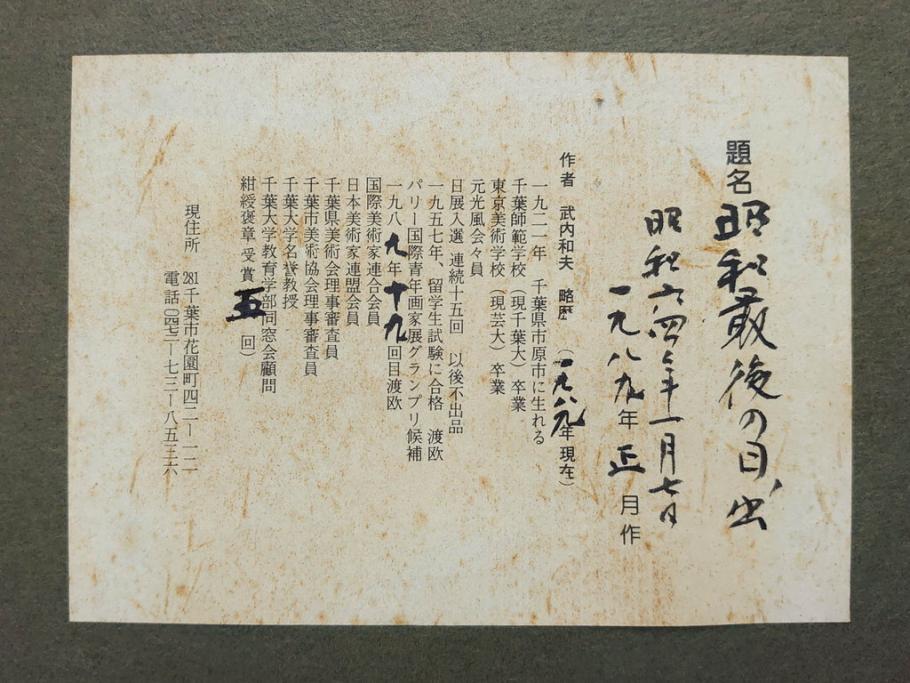 題名 昭和最後の日の出
昭和六四年一月七日
一九八九年 正月作
作者 武内和夫 略歴 (一九八九年現在)
一九二一年 千葉県市原市に生れる
千葉師範学校(現千葉大)卒業
東京美術学校(現芸大)卒業
元光風会々員
日展入選 連続十五回 以後不出品
一九五七年、留学生試験に合格 渡欧
パリー国際青年画家展グランプリ候補
一九八九年十九回目渡欧
国際美術家連合会員
日本美術家連盟会員
千葉県美術会理事審査員
千葉市美術協会理事審査員
千葉大学名誉教授
千葉大学教育学部同窓会顧問
紺綬褒章受賞 五回)
現住所 281千葉市花園町四二ー一二
電話〇四七二ー七三ー八五三六